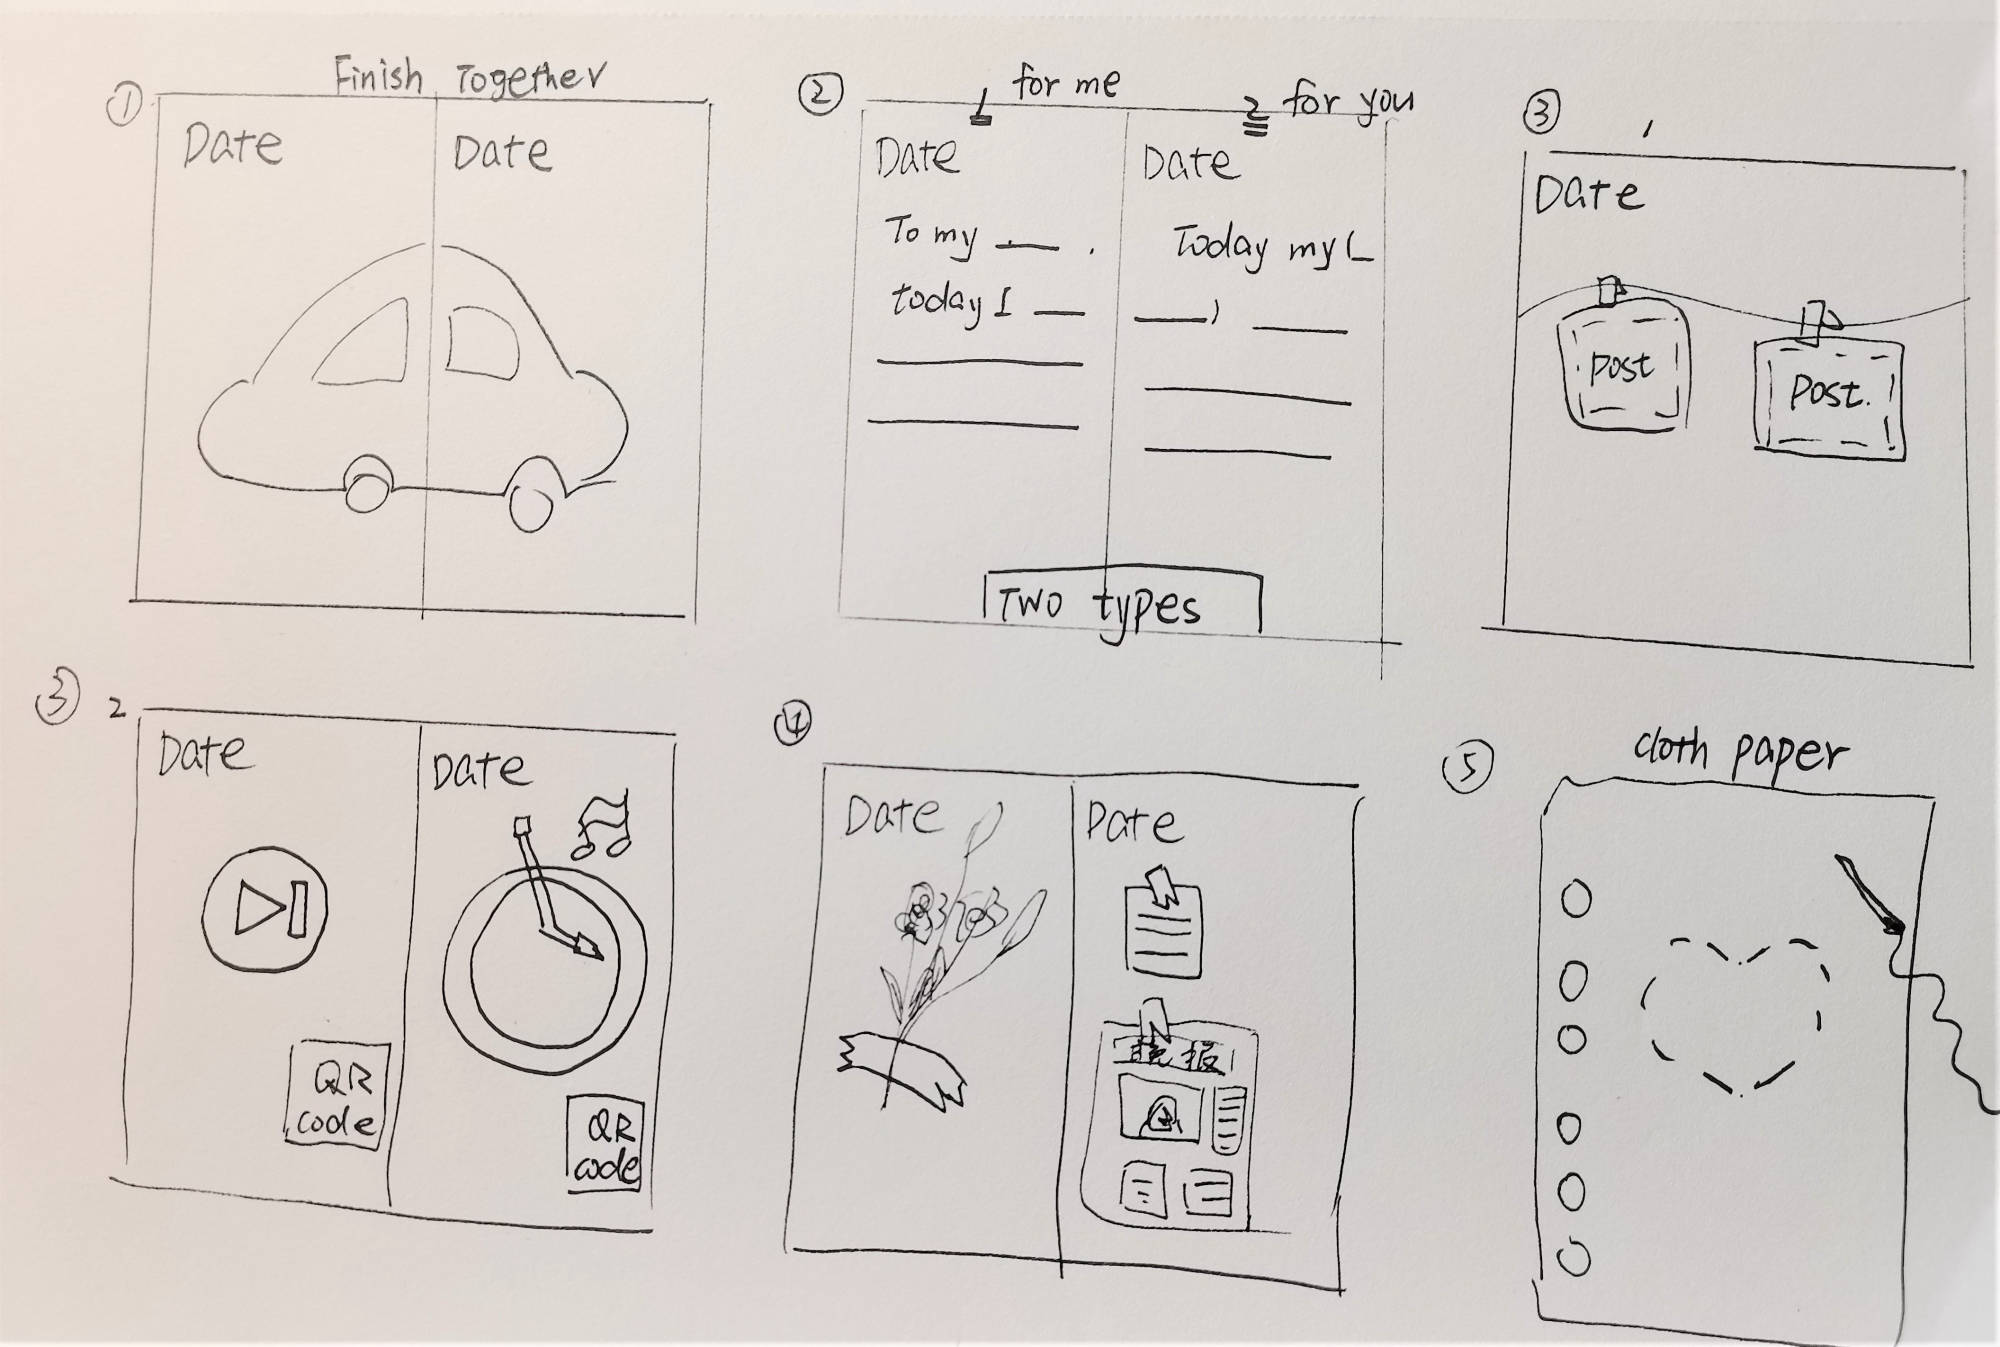 ① Finish Together
Date Date
② 1 for me 2 for you
Date Date
To my ___ .
today I ___
Today my (___
___, ___
Two types
③ 1
Date
post
Post.
③ 2
Date Date
QR
code
QR
code
④
Date Date
晚报
⑤ cloth paper